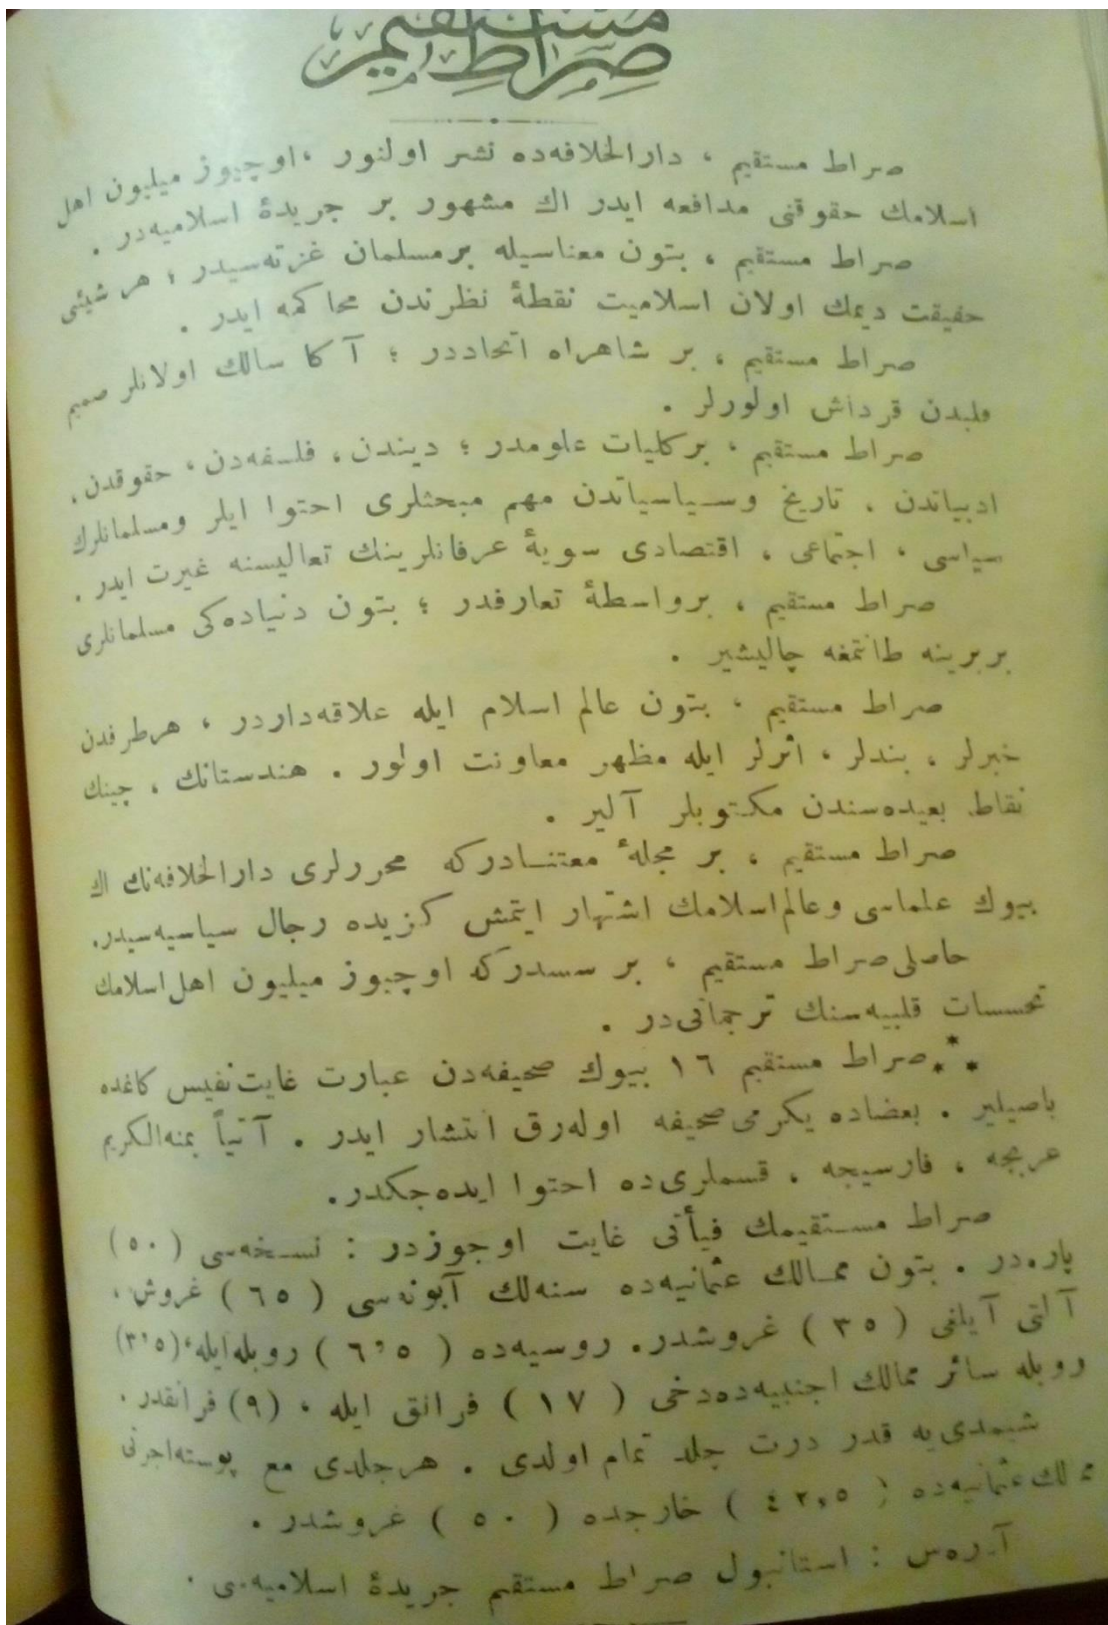 صراط مستقيم
صراط مستقيم ، دار الخلافه‌ده نشر اولنور ، اوچيوز ميليون اهل
اسلامك حقوقنى مدافعه ايدر اك مشهور بر جريدهٔ اسلاميه‌در .
صراط مستقيم ، بتون معناسيله برمسلمان غزته‌سيدر ؛ هر شيئى
حقيقت ديمك اولان اسلاميت نقطهٔ نظرندن محاكمه ايدر .
صراط مستقيم ، بر شاهراه اتحاددر ؛ آ كا سالك اولانلر صميم
قلبدن قرداش اولورلر .
صراط مستقيم ، بركليات علومدر ؛ ديندن ، فلسفه‌دن ، حقوقدن ،
ادبياتدن ، تاريخ وسياسياتدن مهم مبحثلرى احتوا ايلر ومسلمانلرك
سياسى ، اجتماعى ، اقتصادى سويهٔ عرفانلرينك تعاليسنه غيرت ايدر .
صراط مستقيم ، برواسطهٔ تعارفدر ؛ بتون دنياده‌كى مسلمانلرى
بربرينه طانتمغه چاليشير .
صراط مستقيم ، بتون عالم اسلام ايله علاقه‌داردر ، هرطرفدن
خبرلر ، بندلر ، اثرلر ايله مظهر معاونت اولور . هندستانك ، چينك
نقاط بعيده‌سندن مكتوبلر آلير .
صراط مستقيم ، بر مجلهٔ معتنادركه محررلرى دارالخلافه‌نك اك
بيوك علماسى وعالم اسلامك اشتهار ايتمش كزيده رجال سياسيه‌سيدر.
حاصلى صراط مستقيم ، بر سسدركه اوچيوز ميليون اهل اسلامك
تحسسات قلبيه‌سنك ترجمانى‌در .
*** صراط مستقيم ١٦ بيوك صحيفه‌دن عبارت غايت نفيس كاغده
باصيلير . بعضاده يكرمى صحيفه اوله‌رق انتشار ايدر . آتياً بمنه الكريم
عربجه ، فارسيجه ، قسملرى‌ده احتوا ايده‌جكدر.
صراط مستقيمك فيأتى غايت اوجوزدر : نسخه‌سى (٥٠)
پاره‌در . بتون ممالك عثمانيه‌ده سنه‌لك آبونه‌سى ( ٦٥ ) غروش ،
آلتى آيلغى ( ٣٥ ) غروشدر. روسيه‌ده ( ٦,٥ ) روبله ايله ، (٣,٥)
روبله سائر ممالك اجنبيه‌ده‌دخى ( ١٧ ) فرانق ايله ، (٩) فرانقدر .
شيمدى‌يه قدر درت جلد تمام اولدى . هرجلدى مع پوسته اجرتى
ممالك عثمانيه‌ده ( ٤٢,٥ ) خارجده ( ٥٠ ) غروشدر .
آدره‌س : استانبول صراط مستقيم جريدهٔ اسلاميه‌سى .